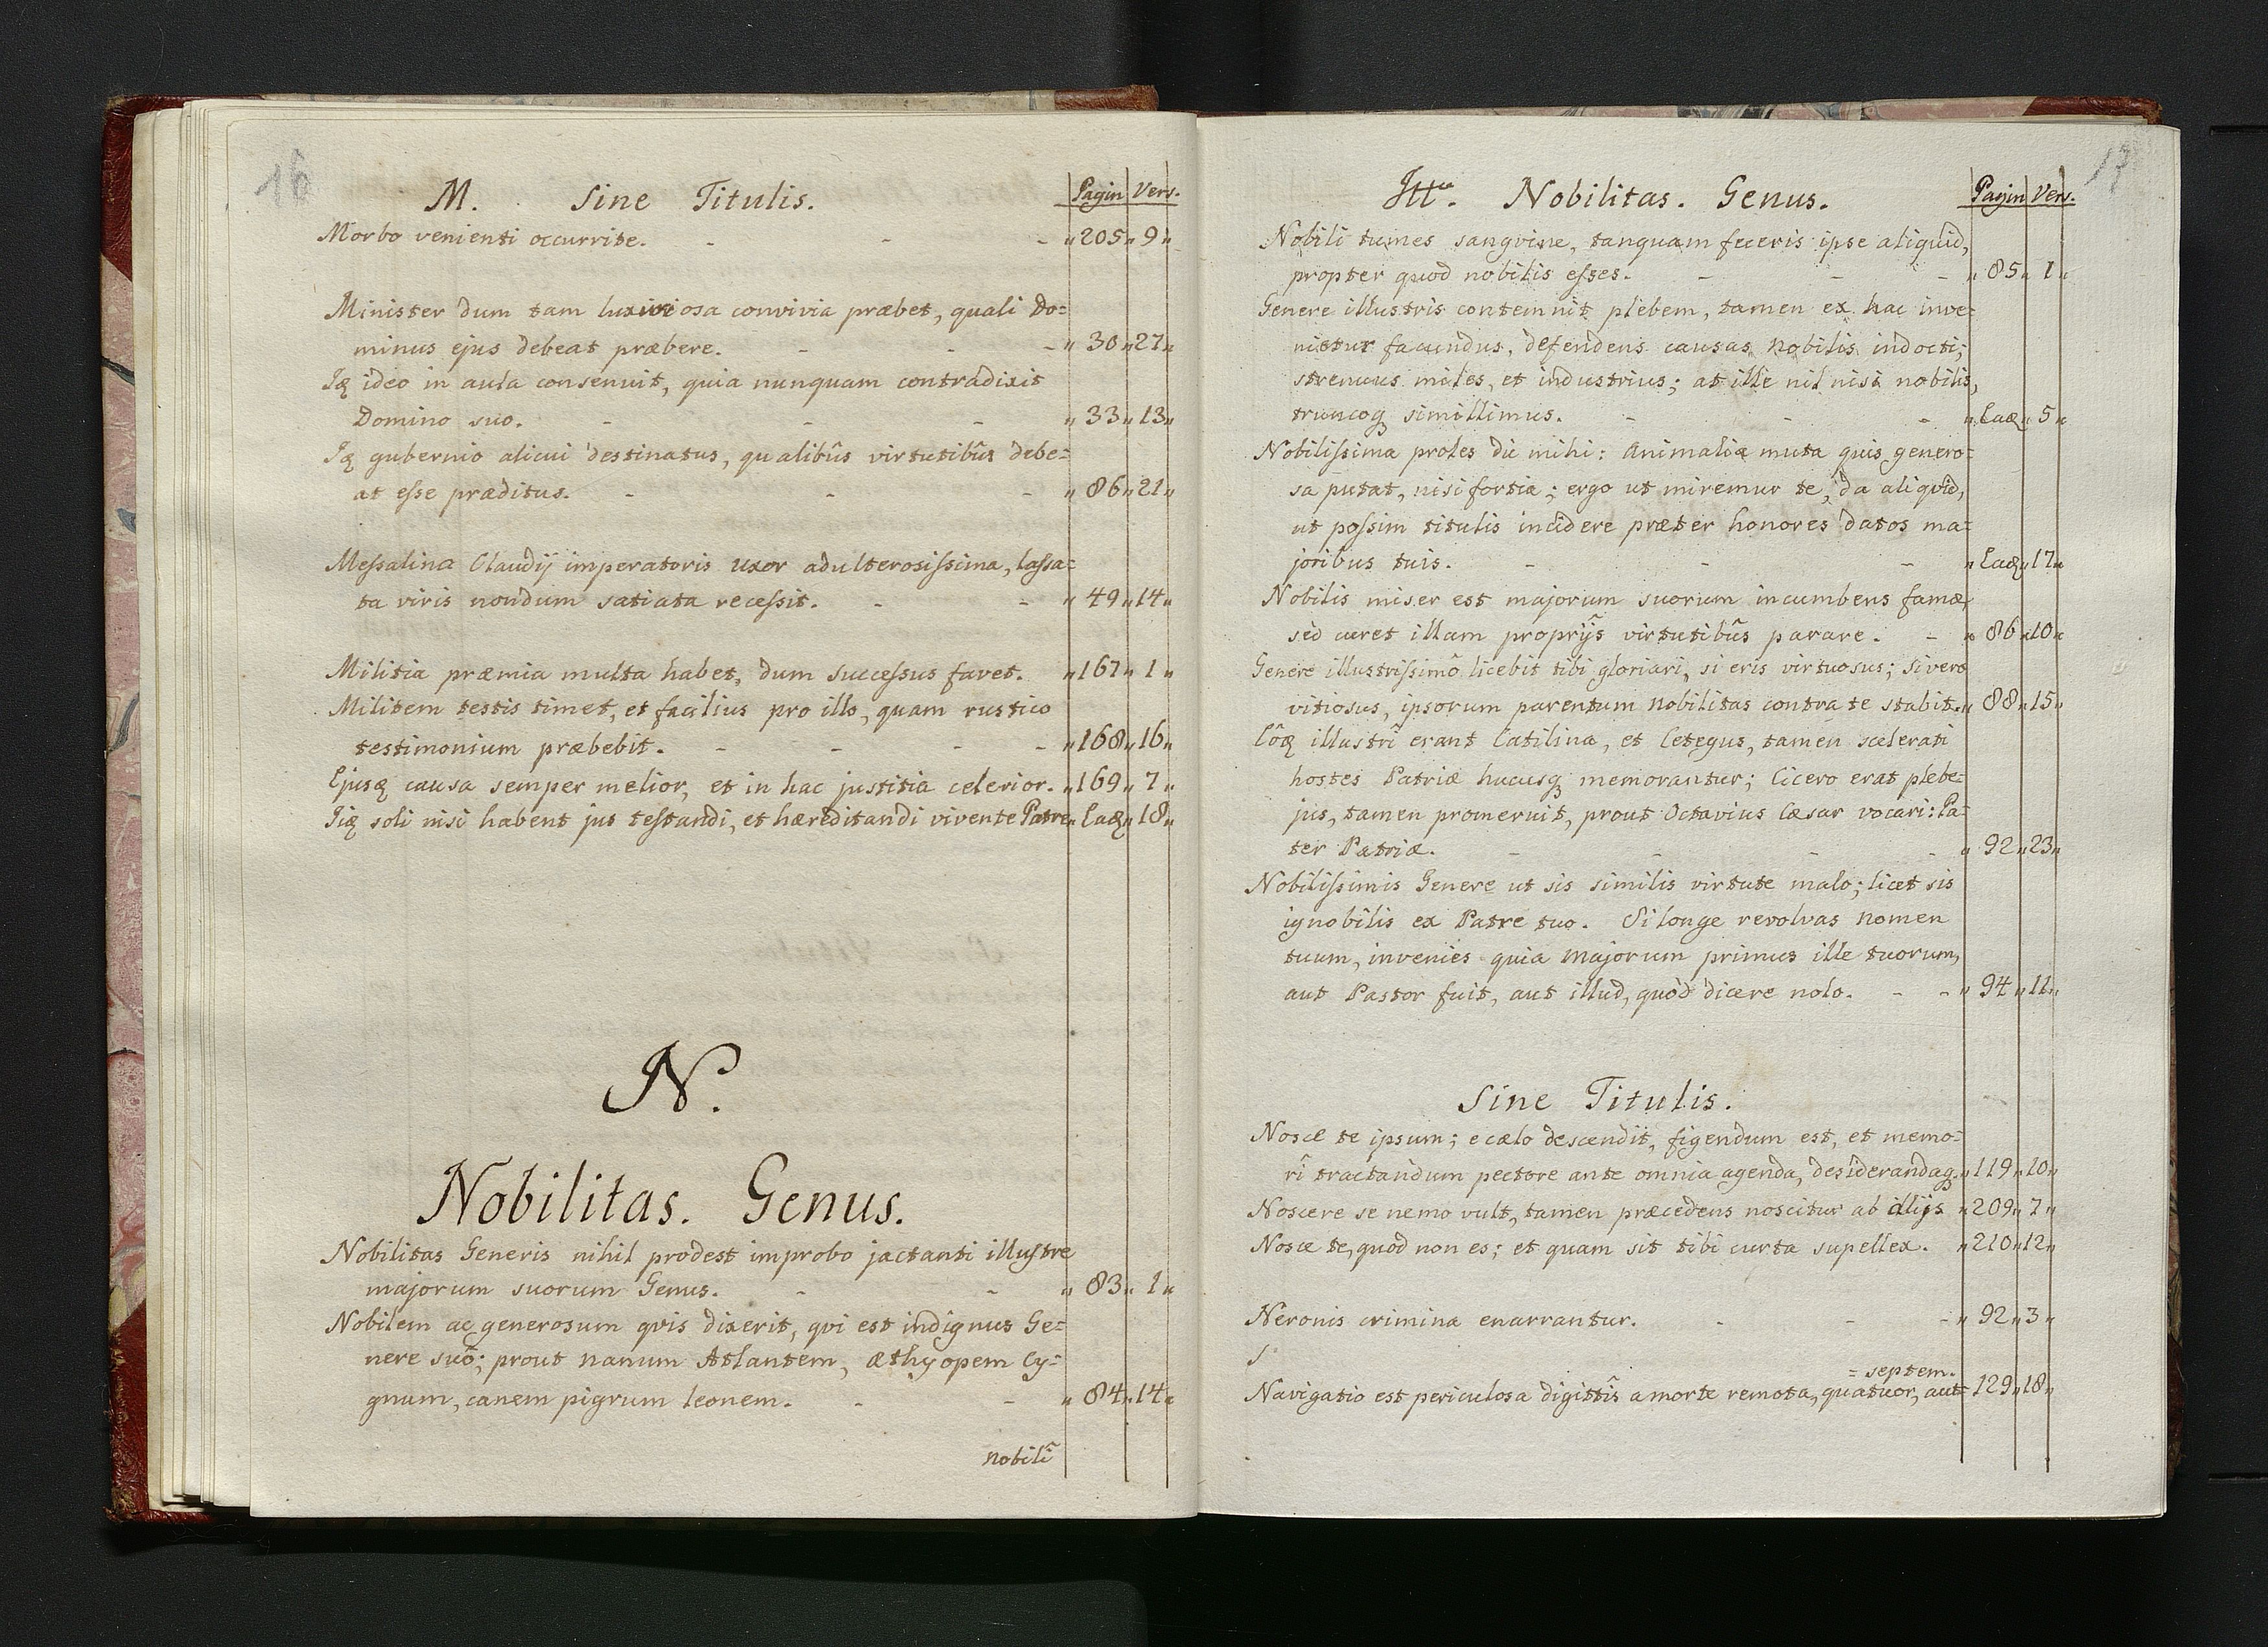 16
M. Sine Titulis. Pagin Vers.
Morbo venienti occurrite. - - - „205„9„
Minister dum tam luxuriosa convivia præbet, quali Do=
minus ejus debeat præbere. - - - „30„27„
Iq ideo in aula consenuit, quia nunquam contradixit
Domino suo. - - - „33„13„
Iq gubernio alicui destinatus, qualibûs virtutibûs debe=
at esse præditus. - - - „86„21„
Messalina Claudij imperatoris uxor adulterosissima, lassa=
ta viris nondum satiata recessit. - - „49„14„
Militia præmia multa habet, dum successus favet. „167„1„
Militem testis timet, et facilius pro illo, quam rustico
testimonium præbebit. - - - - „168„16„
Ejusq causa semper melior, et in hac justitia celerior. „169„7„
Iiq soli nisi habent jus testandi, et hæreditandi vivente Patre „Eaq„18„
N.
Nobilitas. Genus.
Nobilitas Generis nihil prodest improbo jactanti illustre
majorum suorum Genus. - - „83„1„
Nobilem ac generosum qvis dixerit, qvi est indignus Ge=
nere suô; prout nanum Atlantem, æthyopem Cy=
gnum, canem pigrum leonem. - - „84„14„
nobilî
17
Ittu. Nobilitas. Genus. Pagin Vers.
Nobili tumes sangvine, tanquam feceris ipse aliquid,
propter quod nobilis esses. - - - „85„1„
Genere illustris contemnit plebem, tamen ex hac inve=
nietur facundus, defendens causas nobilis indocti;
strenuus miles, et industrius; at ille nil nisi nobilis,
truncoq simillimus. - - - „Eaq„5„
Nobilissima proles dic mihi: animalia muta quis genero=
sa putat, nisi fortia; ergo ut miremur te, da aliqvid,
ut possim titulis incidere præter honores datos ma=
joribus tuis. - - - „Eaq„17„
Nobilis miser est majorum suorum incumbens famæ,
sed curet illam proprijs virtutibûs parare. - „86„10„
Genere illustrissimô licebit tibi gloriari, si eris virtuosus; si vero
vitiosus, ipsorum parentum nobilitas contra te stabit. „88„15„
Eôq illustrî erant Catilina, et Cetegus, tamen scelerati
hostes Patriæ hucusq memorantur; Cicero erat plebe=
jus, tamen promeruit, prout Octavius Cæsar vocari: Pa=
ter Patriæ. - - - - „92„23„
Nobilissimis Genere ut sis similis virtute malo; licet sis
ignobilis ex Patre tuo. Si longe revolvas nomen
tuum, invenies quia majorum primus ille tuorum,
aut Pastor fuit, aut illud, quòd dicere nolo. - - „94„11„
Sine Titulis.
Nosce te ipsum; e cælo descendit, figendum est, et memo=
rî tractandum pectore ante omnia agenda, desiderandaq. „119„10„
Noscere se nemo vult, tamen præcedens noscitur ab illijs „209„7„
Nosce te, quod non es; et quam sit tibi curta supellex. „210„12„
Neronis crimina enarrantur. - - - „92„3„
= septem.
Navigatio est periculosa digittîs a morte remota, quatuor, aut= 129„18„